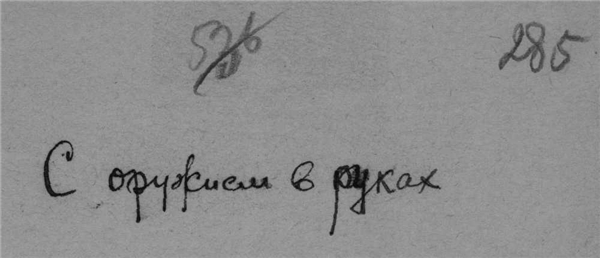 285
С оружием в руках